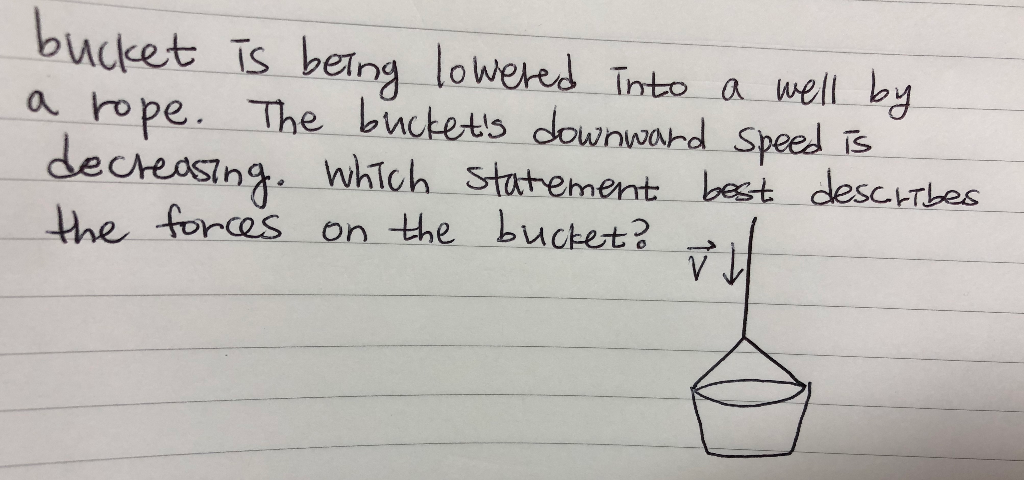 bucket is being lowered into a well by
a rope. The bucket's downward speed is
decreasing. Which statement best describes
the forces on the bucket?
v↓